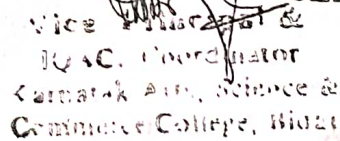 Vice Principal &
IQAC, Coordinator
Karnatak Arts, Science &
Commerce College, Bidar